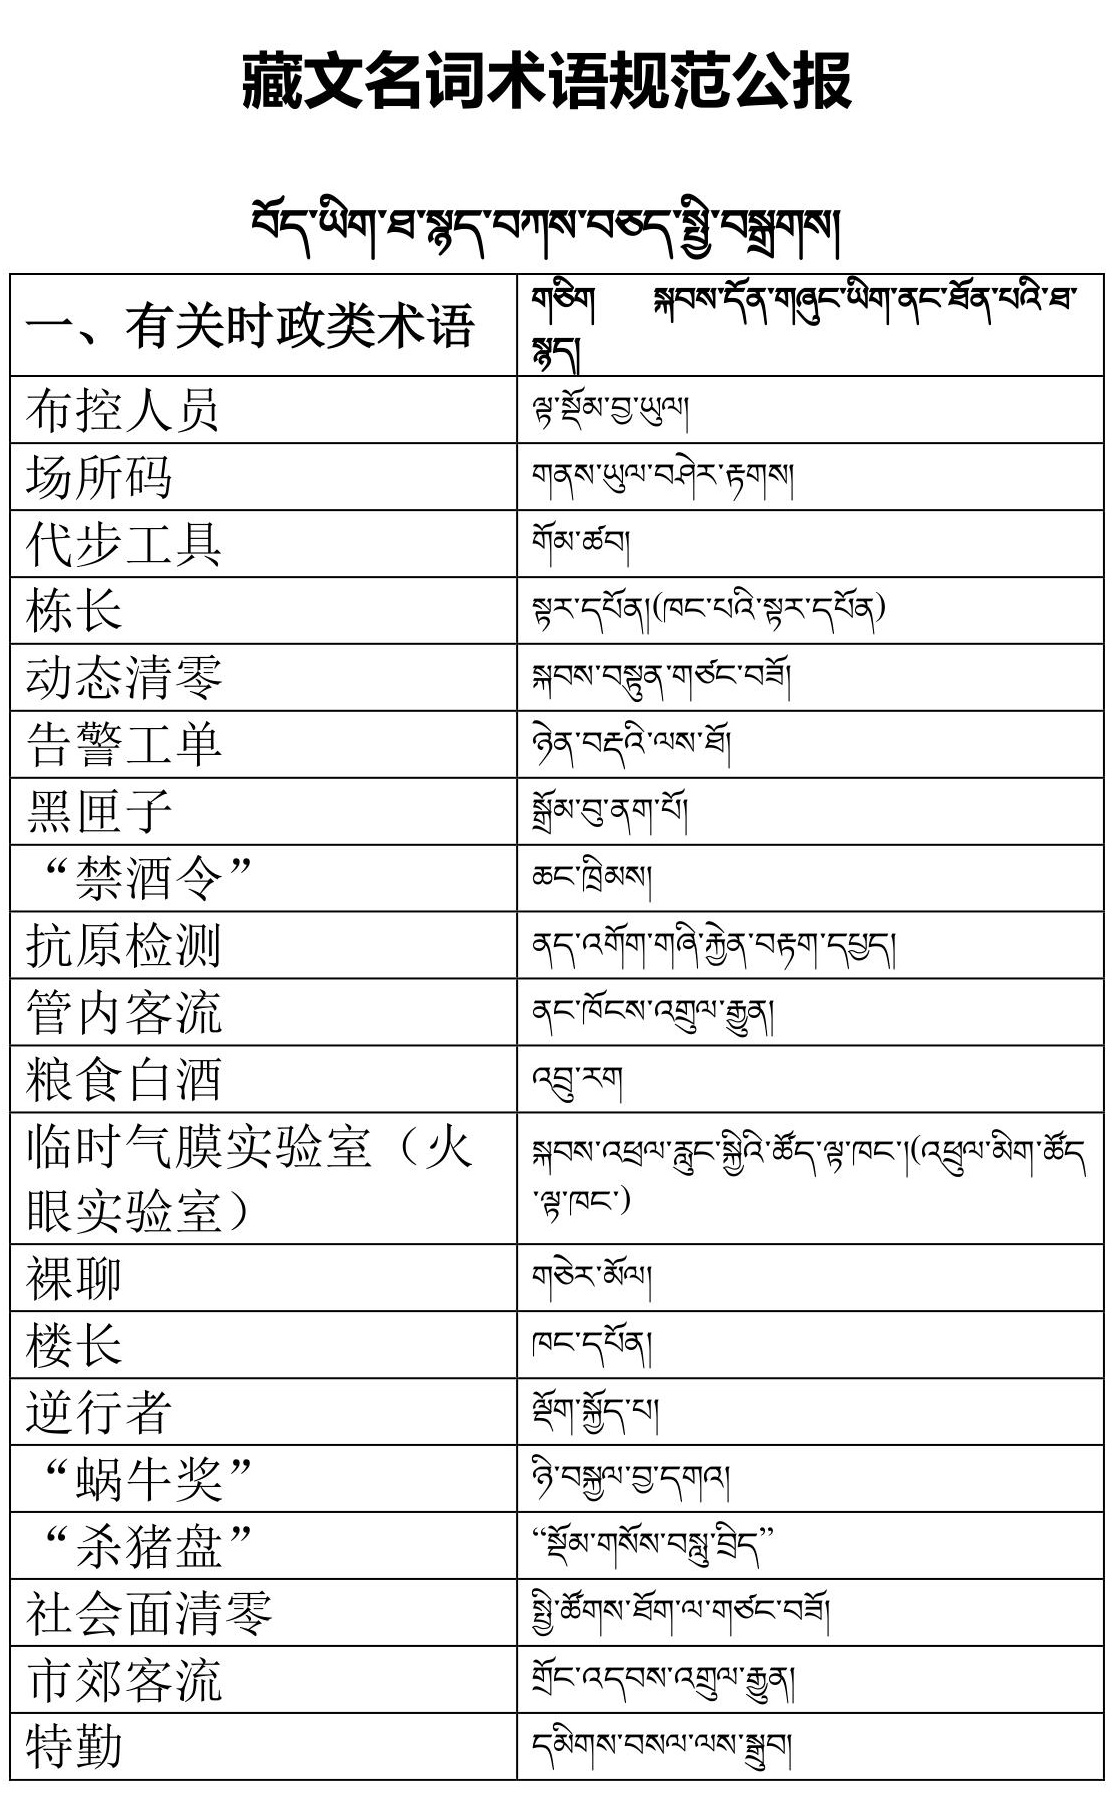 藏文名词术语规范公报
བོད་ཡིག་ཐ་སྙད་བཀས་བཅད་སྤྱི་བསྒྲགས།
一、有关时政类术语
གཅིག སྐབས་དོན་གཞུང་ཡིག་ནང་ཐོན་པའི་ཐ་
སྙད།
布控人员
ལྟ་སྡོམ་བྱ་ཡུལ།
场所码
གནས་ཡུལ་བཤེར་རྟགས།
代步工具
གོམ་ཚབ།
栋长
སྟར་དཔོན།(ཁང་པའི་སྟར་དཔོན)
动态清零
སྐབས་བསྟུན་གཙང་བཟོ།
告警工单
ཉེན་བརྡའི་ལས་ཐོ།
黑匣子
སྒྲོམ་བུ་ནག་པོ།
“禁酒令”
ཆང་ཁྲིམས།
抗原检测
ནད་འགོག་གཞི་རྐྱེན་བརྟག་དཔྱད།
管内客流
ནང་ཁོངས་འགྲུལ་རྒྱུན།
粮食白酒
འབྲུ་རག
临时气膜实验室（火
眼实验室）
སྐབས་འཕྲལ་རླུང་སྐྱིའི་ཚོད་ལྟ་ཁང་།(འཕྲུལ་མིག་ཚོད
་ལྟ་ཁང་)
裸聊
གཅེར་མོལ།
楼长
ཁང་དཔོན།
逆行者
ལྡོག་སྐྱོད་པ།
“蜗牛奖”
ཉི་བསྐྱལ་བྱ་དགའ།
“杀猪盘”
“སྡོམ་གསོས་བསླུ་བྲིད”
社会面清零
སྤྱི་ཚོགས་ཐོག་ལ་གཙང་བཟོ།
市郊客流
གྲོང་འདབས་འགྲུལ་རྒྱུན།
特勤
དམིགས་བསལ་ལས་སྒྲུབ།